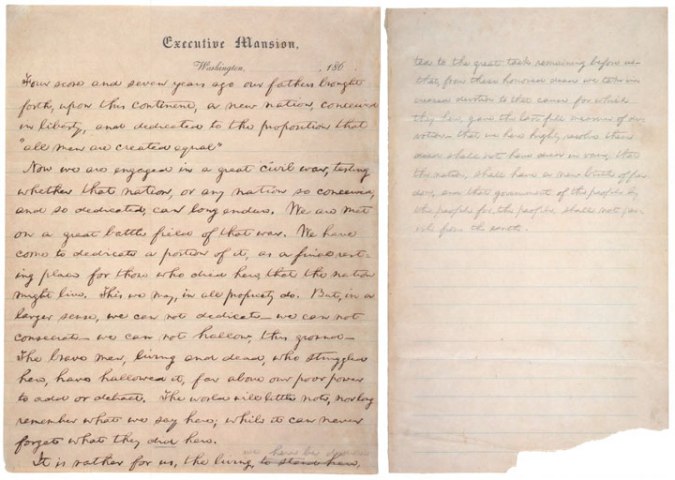 Executive Mansion,
Washington, , 186 .
Four score and seven years ago our fathers brought
forth, upon this continent, a new nation, conceived
in liberty, and dedicated to the proposition that
"all men are created equal"
Now we are engaged in a great civil war, testing
whether that nation, or any nation so conceived,
and so dedicated, can long endure. We are met
on a great battle field of that war. We have
come to dedicate a portion of it, as a final rest-
ing place for those who died here, that the nation
might live. This we may, in all propriety do. But, in a
larger sense, we can not dedicate — we can not
consecrate — we can not hallow, this ground —
The brave men, living and dead, who struggled
here, have hallowed it, far above our poor power
to add or detract. The world will little note, nor long
remember what we say here; while it can never
forget what they did here.
we here be dedica-
It is rather for us, the living, to stand here,
ted to the great task remaining before us —
that, from these honored dead we take in-
creased devotion to that cause for which
they here, gave the last full measure of de-
votion — that we here highly resolve these
dead shall not have died in vain; that
the nation, shall have a new birth of free-
dom, and that government of the people by
the people for the people, shall not per-
ish from the earth.